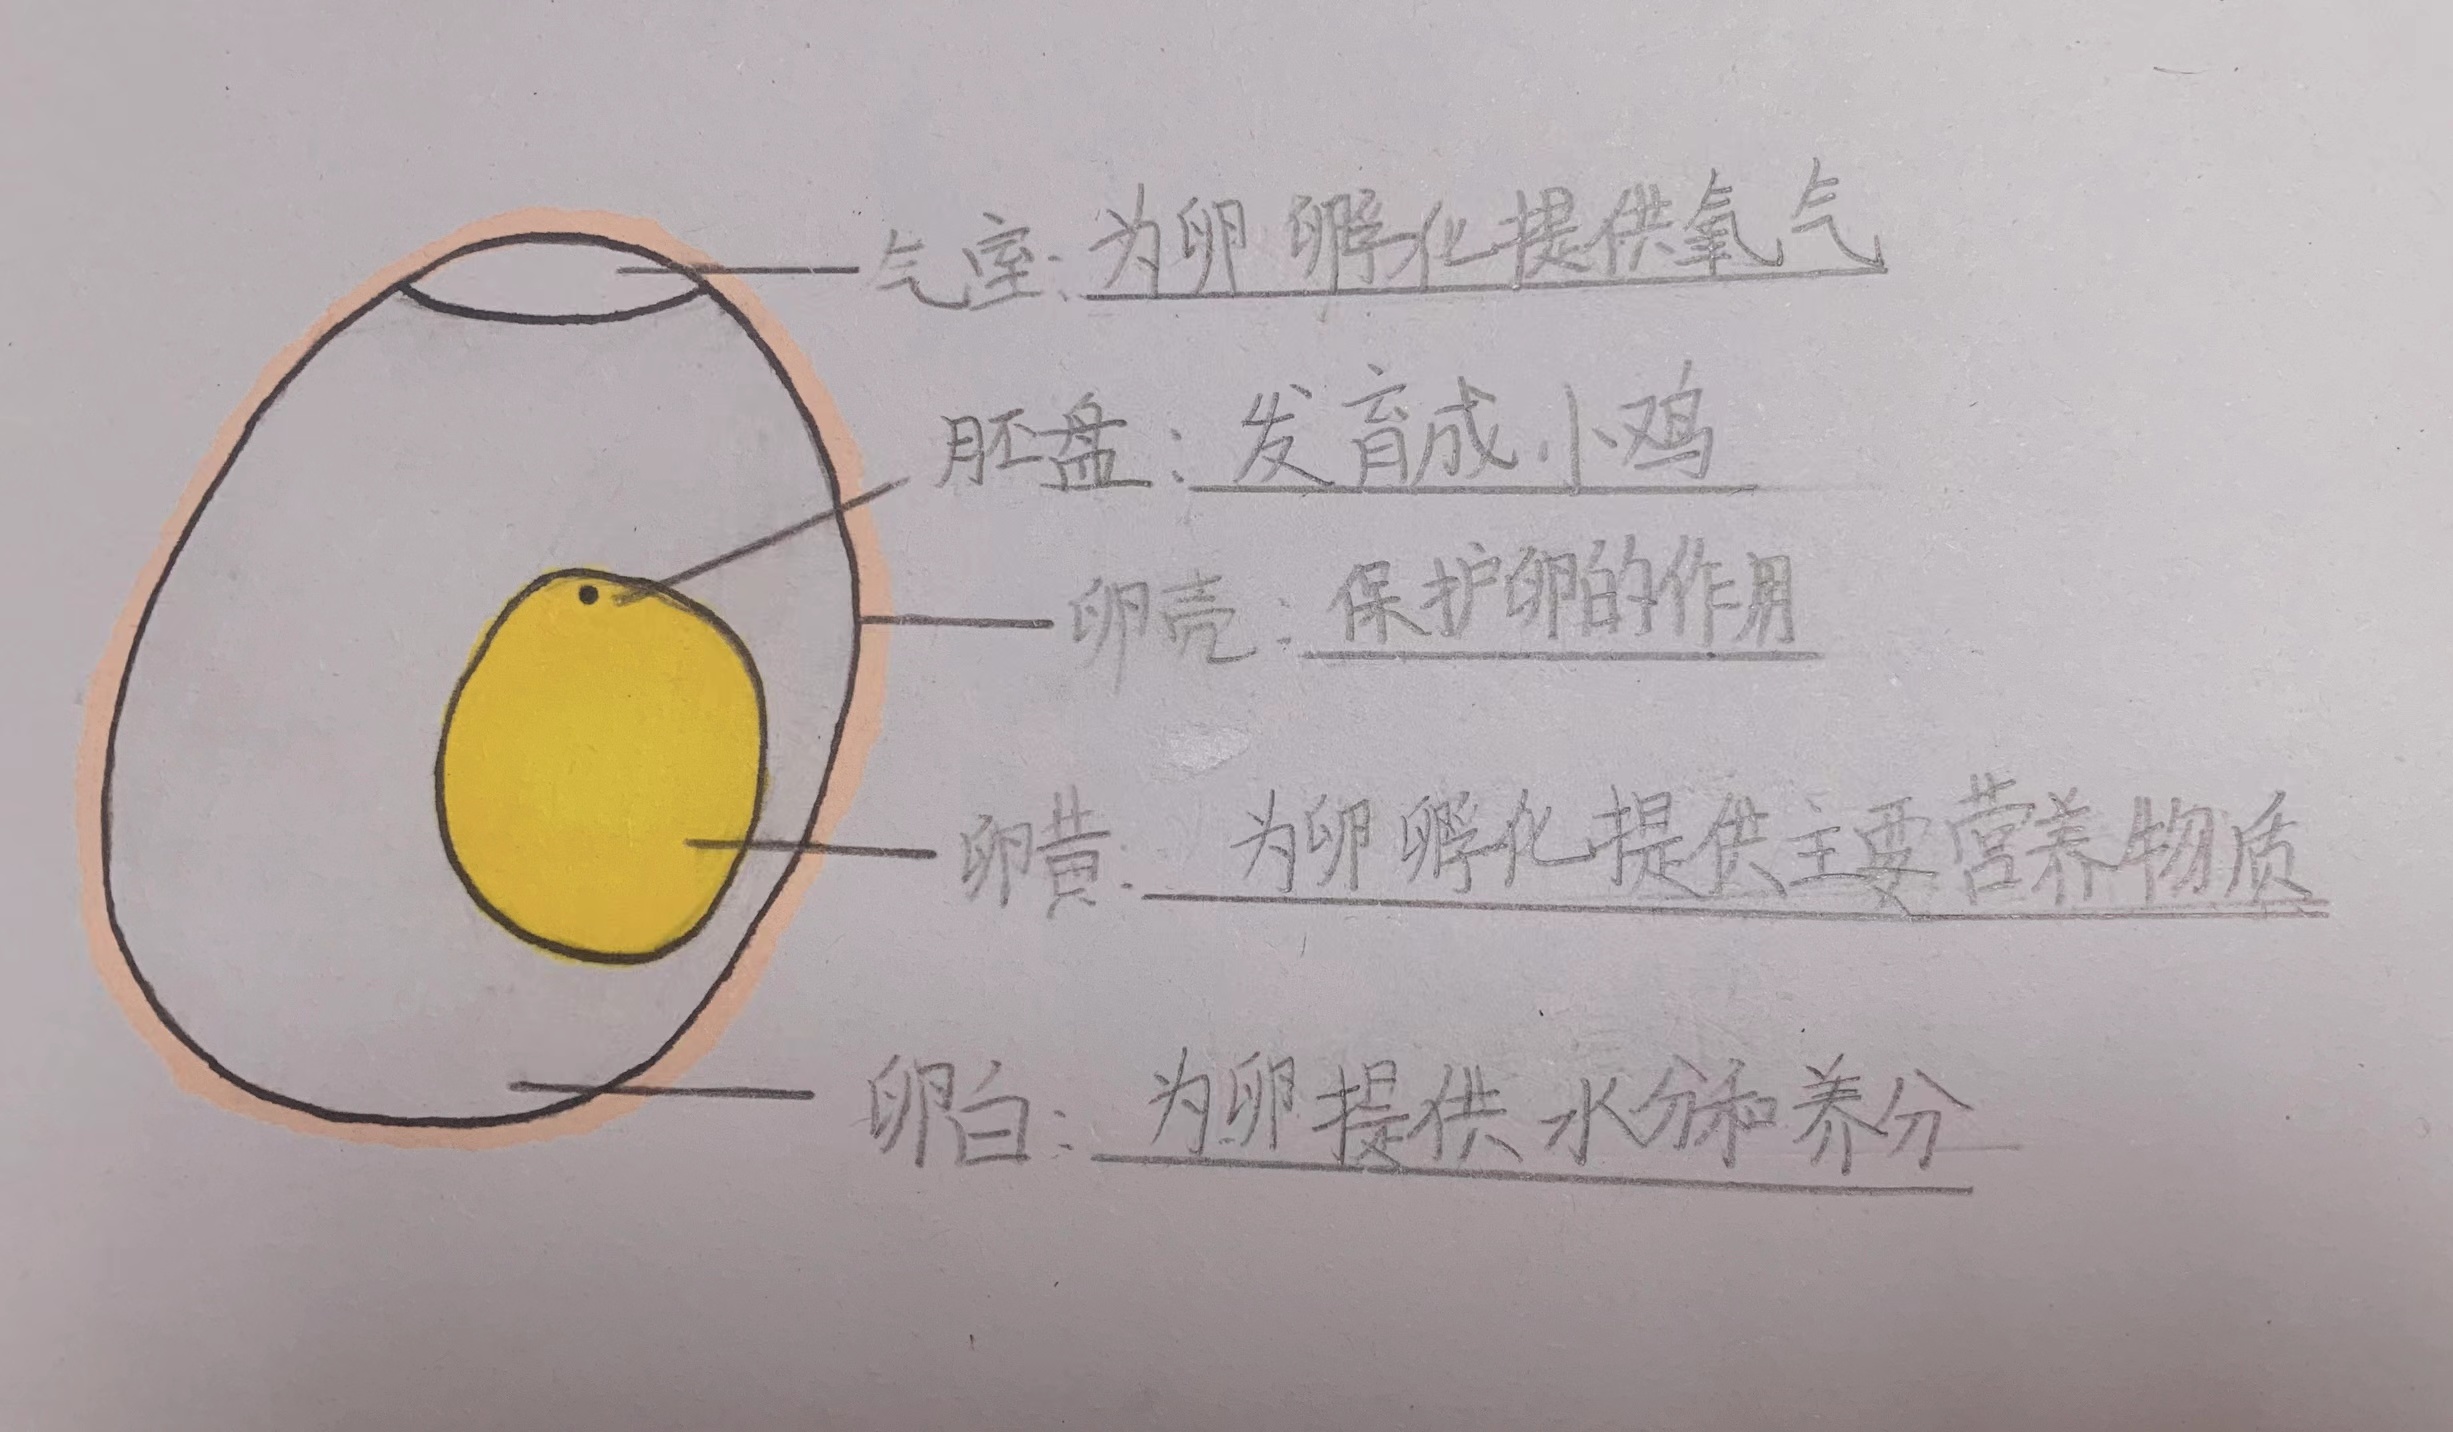 气室:为卵孵化提供氧气
胚盘:发育成小鸡
卵壳:保护卵的作用
卵黄:为卵孵化提供主要营养物质
卵白:为卵提供水分和养分